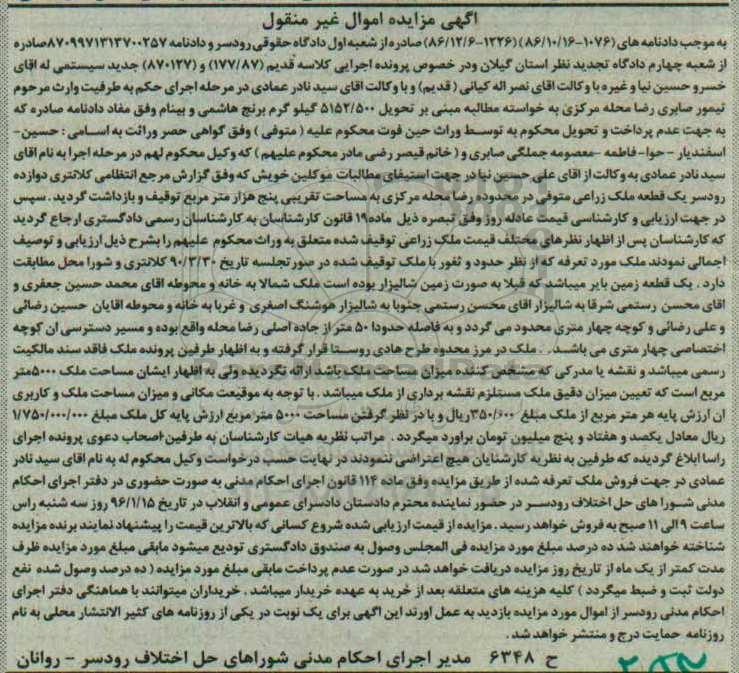 آگهی مزایده اموال غیر منقول
به موجب دادنامه های (۱۰۷۶-۸۶/۱۰/۱۶) (۱۲۲۶-۸۶/۱۲/۶) صادره از شعبه اول دادگاه حقوقی رودسر و دادنامه ۸۷۰۹۹۷۱۳۱۳۷۰۰۲۵۷ صادره
از شعبه چهارم دادگاه تجدید نظر استان گیلان ودر خصوص پرونده اجرایی کلاسه قدیم (۱۷۷/۸۷) و (۸۷۰۱۲۷) جدید سیستمی له اقای
خسرو حسین نیا و غیره با وکالت اقای نصراله کیانی (قدیم) و با وکالت اقای سید نادر عمادی در مرحله اجرای حکم به طرفیت وراث مرحوم
تیمور صابری رضا محله مرکزی به خواسته مطالبه مبنی بر تحویل ۵۱۵۲/۵۰۰ گیلو گرم برنج هاشمی و بینام وفق مفاد دادنامه صادره که
به جهت عدم پرداخت و تحویل محکوم به توسط وراث حین فوت محکوم علیه (متوفی) وفق گواهی حصر وراثت به اسامی: حسین-
اسفندیار - حوا- فاطمه -معصومه جملگی صابری و (خانم قیصر رضی مادر محکوم علیهم) که وکیل محکوم لهم در مرحله اجرا به نام اقای
سید نادر عمادی به وکالت از اقای علی حسین نیا در جهت استیفای مطالبات موکلین خویش که وفق گزارش مرجع انتظامی کلانتری دوازده
رودسر یک قطعه ملک زراعی متوفی در محدوده رضا محله مرکزی به مساحت تقریبی پنج هزار متر مربع توقیف و بازداشت گردید. سپس
در جهت ارزیابی و کارشناسی قیمت عادله روز وفق تبصره ذیل ماده ۱۹ قانون کارشناسان به کارشناسان رسمی دادگستری ارجاع گردید
که کارشناسان پس از اظهار نظرهای مختلف قیمت ملک زراعی توقیف شده متعلق به وراث محکوم علیهم را بشرح ذیل ارزیابی و توصیف
اجمالی نمودند ملک مورد تعرفه که از نظر حدود و ثغور با ملک توقیف شده در صور تجلسه تاریخ ۹۰/۳/۳۰ کلانتری و شورا محل مطابقت
دارد. یک قطعه زمین بایر میباشد که قبلا به صورت زمین شالیزار بوده است ملک شمالا به خانه و محوطه اقای محمد حسین جعفری و
اقای محسن رستمی شرقا به شالیزار اقای محسن رستمی جنوبا به شالیزار هوشنگ اصغری و غربا به خانه و محوطه اقایان حسین رضائی
و علی رضائی و کوچه چهار متری محدود می گردد و به فاصله حدودا ۵۰ متر از جاده اصلی رضا محله واقع بوده و مسیر دسترسی ان کوچه
اختصاصی چهار متری می باشد. . ملک در مرز محدوه طرح هادی روستا قرار گرفته و به اظهار طرفین پرونده ملک فاقد سند مالکیت
رسمی میباشد و نقشه یا مدرکی که مشخص کننده میزان مساحت ملک باشد ارائه نگردیده ولی به اظهار ایشان مساحت ملک ۵۰۰۰متر
مربع است که تعیین میزان دقیق ملک مستلزم نقشه برداری از ملک میباشد. با توجه به موقیعت مکانی و میزان مساحت ملک و کاربری
ان ارزش پایه هر متر مربع از ملک مبلغ ۳۵۰/۰۰۰ریال و با در نظر گرفتن مساحت ۵۰۰۰ متر مربع ارزش پایه کل ملک مبلغ ۱/۷۵۰/۰۰۰/۰۰۰
ریال معادل یکصد و هفتاد و پنج میلیون تومان براورد میگردد. مراتب نظریه هیات کارشناسان به طرفین اصحاب دعوی پرونده اجرای
راسا ابلاغ گردیده که طرفین به نظریه کارشنایان هیچ اعتراضی ننمودند در نهایت حسب درخواست وکیل محکوم له به نام اقای سید نادر
عمادی در جهت فروش ملک تعرفه شده از طریق مزایده وفق ماده ۱۱۴ قانون اجرای احکام مدنی به صورت حضوری در دفتر اجرای احکام
مدنی شورا های حل اختلاف رودسر در حضور نماینده محترم دادستان دادسرای عمومی و انقلاب در تاریخ ۹۶/۱/۱۵ روز سه شنبه راس
ساعت ۹ الی ۱۱ صبح به فروش خواهد رسید. مزایده از قیمت ارزیابی شده شروع کسانی که بالاترین قیمت را پیشنهاد نمایند برنده مزایده
شناخته خواهند شد ده درصد مبلغ مورد مزایده فی المجلس وصول به صندوق دادگستری تودیع میشود مابقی مبلغ مورد مزایده ظرف
مدت کمتر از یک ماه از تاریخ روز مزایده دریافت خواهد شد در صورت عدم پرداخت مابقی مبلغ مورد مزایده (ده درصد وصول شده نفع
دولت ثبت و ضبط میگردد) کلیه هزینه های متعلقه بعد از خرید به عهده خریدار میباشد. خریداران میتوانند با هماهنگی دفتر اجرای
احکام مدنی رودسر از اموال مورد مزایده بازدید به عمل اورند این اگهی برای یک نوبت در یکی از روزنامه های کثیر الانتشار محلی به نام
روزنامه حمایت درج و منتشر خواهد شد.
ح ۶۳۴۸ مدیر اجرای احکام مدنی شوراهای حل اختلاف رودسر - روانان